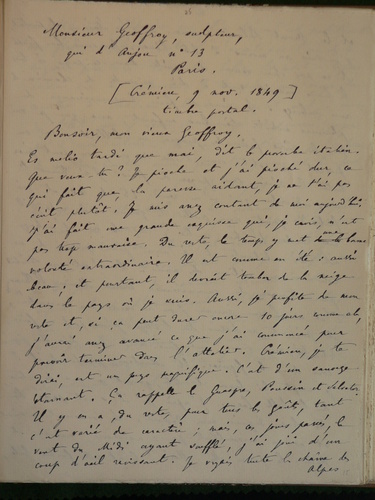 Monsieur Geoffroy, sculpteur,
quai d'Anjou n° 13
Paris.
[Crémieu, 9 nov. 1849]
timbre postal.
Bonsoir, mon vieux Geoffroy.
Es melio tardi que mai, dit le proverbe italien.
Que veux-tu? Je pioche et j'ai pioché dur, ce
qui fait que, la paresse aidant, je ne t'ai pas
écrit plutôt. Je suis assez content de moi aujourd'hui,
j'ai fait une grande esquisse qui, je crois, n'est
pas trop mauvaise. Du reste, le temps y met de la bonne
volonté extraordinaire. Il est comme en été: aussi
beau, et pourtant, il devrait tomber de la neige
dans le pays où je suis. Aussi, je profite de mon
reste et, si ça peut durer encore 10 jours comme ça,
j'aurai assez avancé ce que j'ai commencé pour
pouvoir terminer dans l'atelier. Crémieu, je te
dirai, est un pays magnifique. C'est d'un sauvage
étonnant. Ça rappelle le Guaspre, Poussin et Salvator.
Il y en a, du reste, pour tous les goûts, tant
c'est varié de caractère; mais, ces jours passés, le
vent du Midi ayant soufflé, j'ai joui d'un
coup d'œil ravissant. Je voyais toute la chaîne des
Alpes